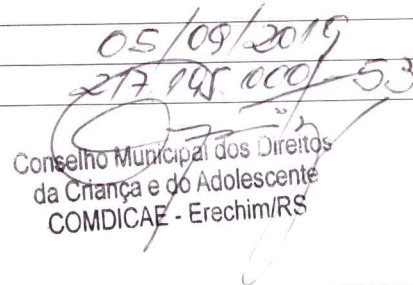 05/09/2019
217.195.000/-53
Conselho Municipal dos Direitos
da Criança e do Adolescente
COMDICAE - Erechim/RS